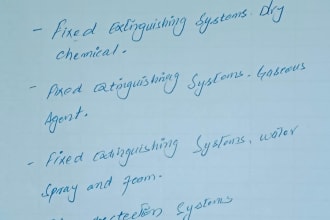 - Fixed Extinguishing Systems. Dry
chemical.
- Fixed extinguishing Systems. Gaseous
Agent.
- Fixed extinguishing Systems, water
Spray and foam.
Systems